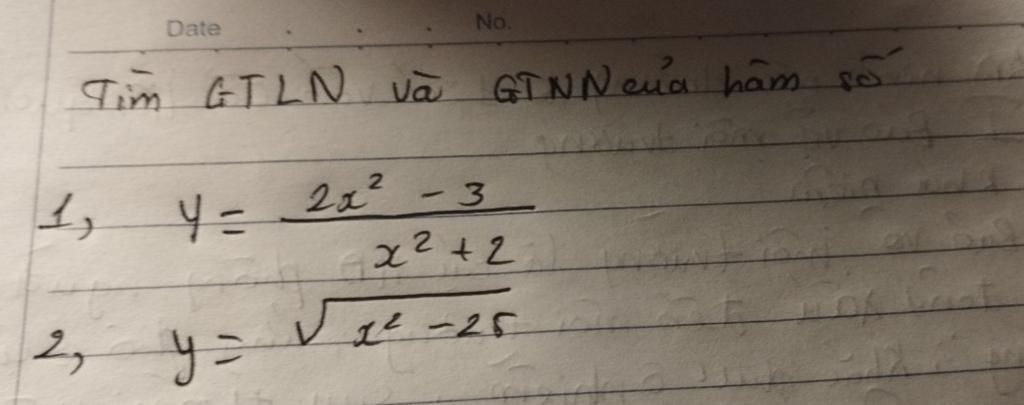 Date . . . No.
Tìm GTLN và GTNN của hàm số
1, y = \frac{2x² - 3}{x² + 2}
2, y = √(x² - 25)